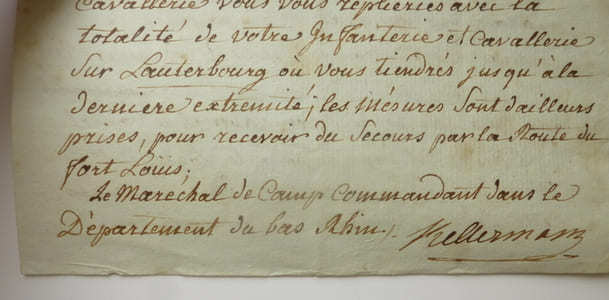 Cavallerie vous vous replieriés avec la
totalité de votre Infanterie et Cavallerie
sur Lauterbourg où vous tiendrés jusqu'à la
derniere extremité; les mésures sont d'ailleurs
prises, pour recevoir du Secours par la Route du
fort Loüis;
Le Marechal de Camp Commandant dans le
Département du bas Rhin/.
Kellermann